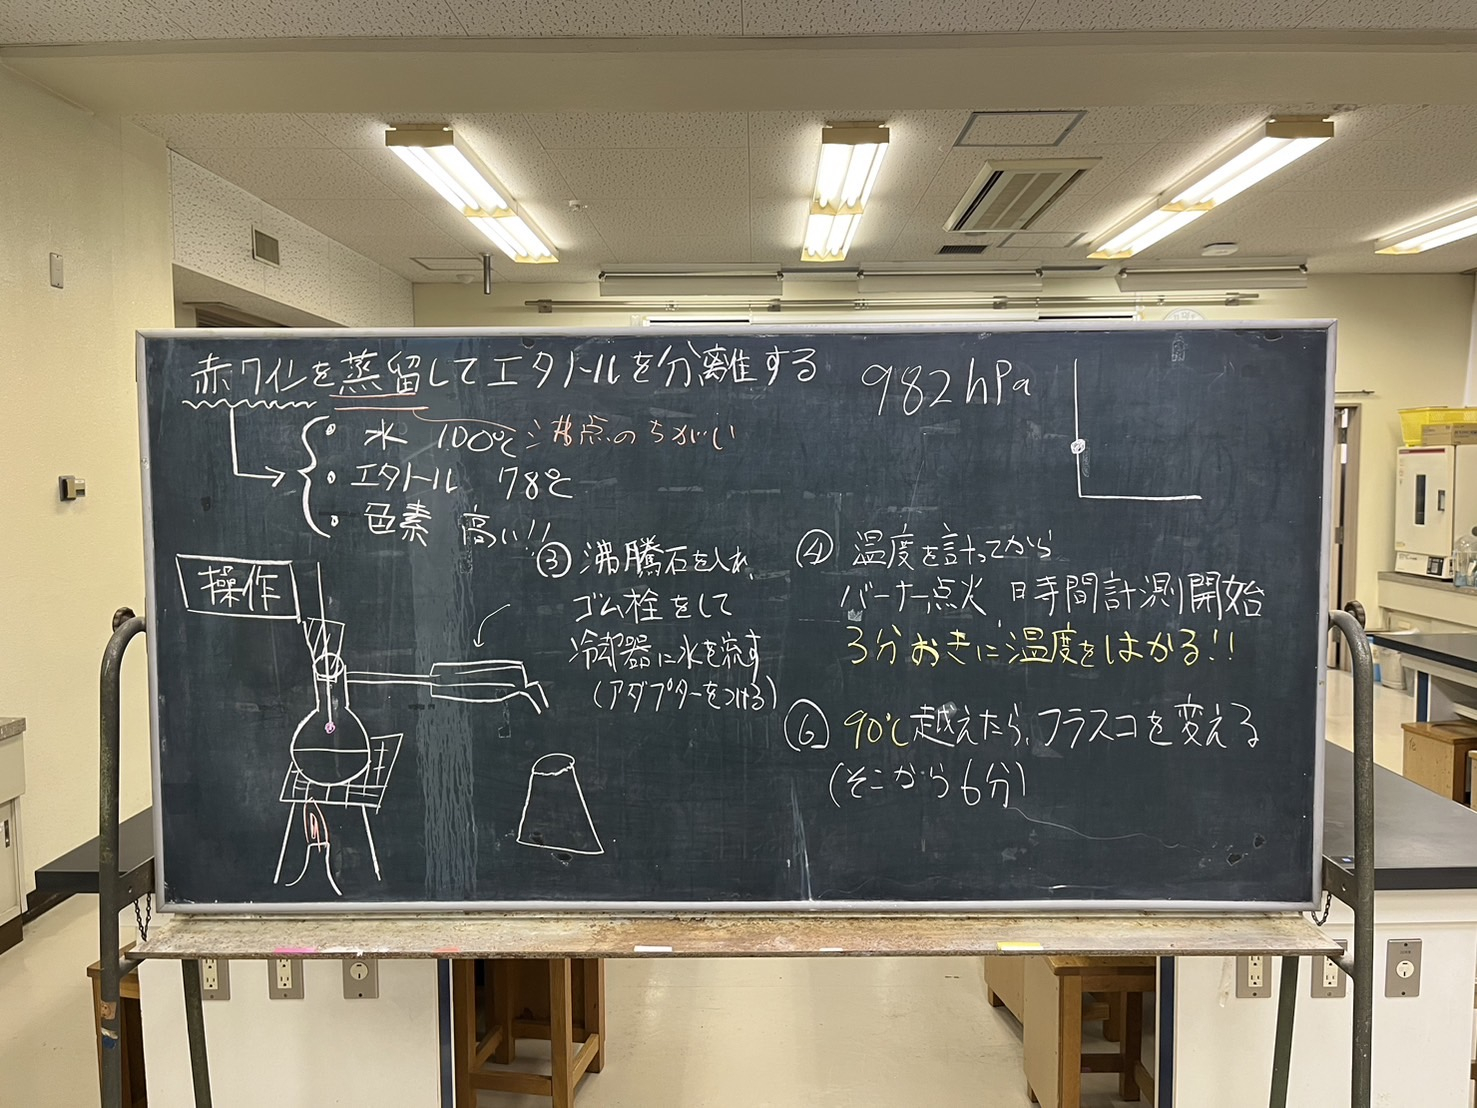 赤ワインを蒸留してエタノールを分離する
982hPa
・水 100℃ 沸点のちがい
・エタノール 78℃
・色素 高い!!
操作
③ 沸騰石を入れ、
ゴム栓をして
冷却器に水を流す
(アダプターをつける)
④ 温度を計ってから
バーナー点火 時間計測開始
3分おきに温度をはかる!!
⑥ 90℃越えたら、フラスコを変える
(そこから6分)